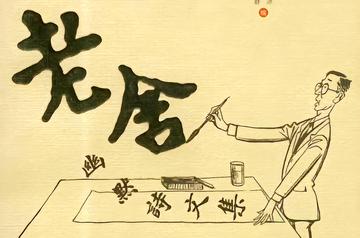 老舍
幽默詩文集